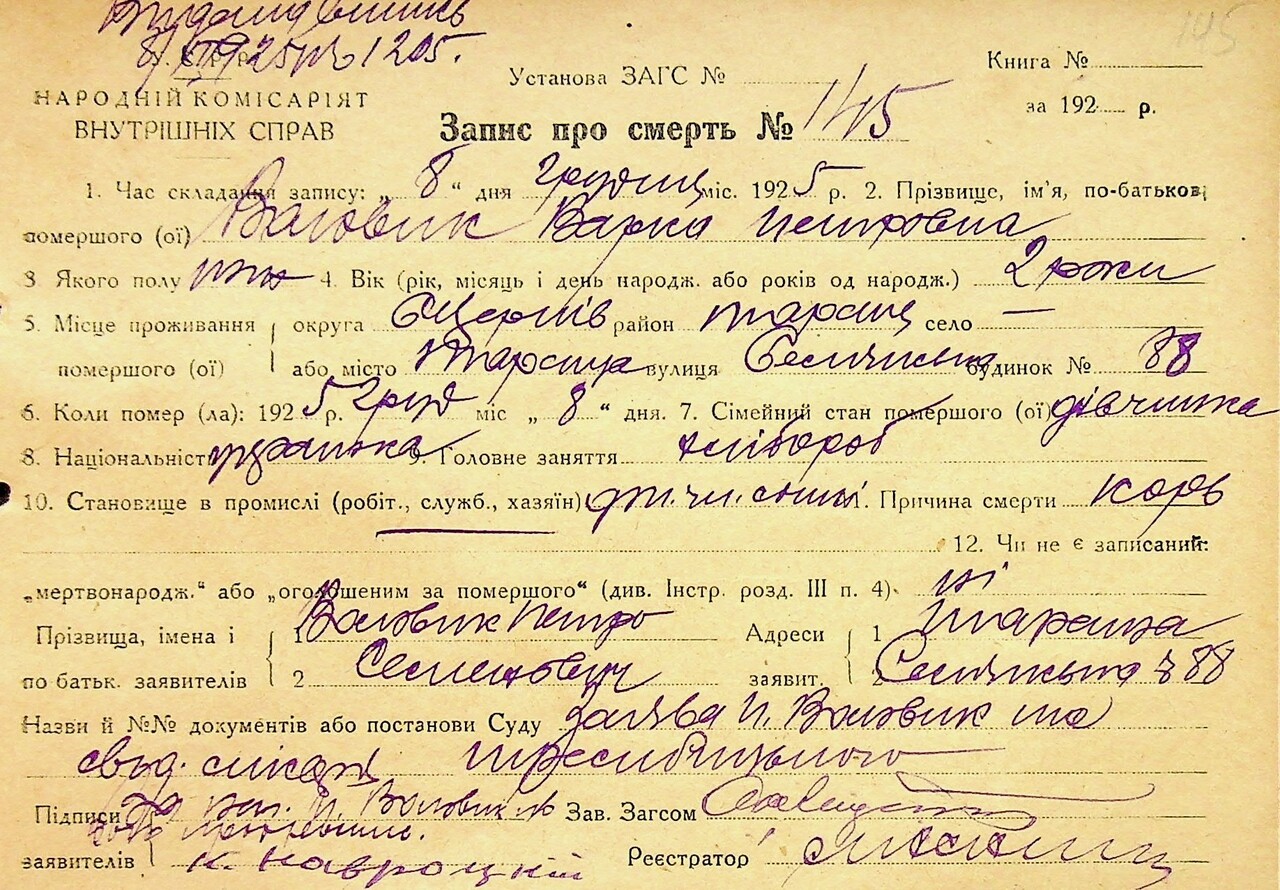 145
8/XII 1925 р № 1205.
У.С.Р.Р.
Установа ЗАГС №
Книга №
НАРОДНІЙ КОМІСАРІЯТ
за 192 р.
ВНУТРІШНІХ СПРАВ
Запис про смерть № 145
1. Час складання запису: „ 8 “ дня Грудня міс. 1925 р. 2. Прізвище, ім’я, по-батькові
помершого (ої) Воловик Варка Петровна
3. Якого полу жін 4. Вік (рік, місяць і день народж. або років од народж.) 2 роки
5. Місце проживання округа БЦерків район Таращ село —
помершого (ої) або місто Тараща вулиця будинок № 88
6. Коли помер (ла): 1925 р. Груд міс „ 8 “ дня. 7. Сімейний стан помершого (ої) дівчинка
8. Національність українка 9. Головне заняття хлібороб
10. Становище в промислі (робіт., служб., хазяїн) 11. Причина смерти корь
12. Чи не є записаний:
„мертвонародж.“ або „оголошеним за помершого“ (див. Інстр. розд. III п. 4) ні
Прізвища, імена і 1 Воловик Петро Адреси 1 Тараща
по батьк. заявителів 2 Семенович заявит. 2 88
Назви й №№ документів або постанови Суду Заява П. Воловик та
свід. лікаря
Підписи П. Воловик Зав. Загсом
заявителів К. Навроцкій Реєстратор